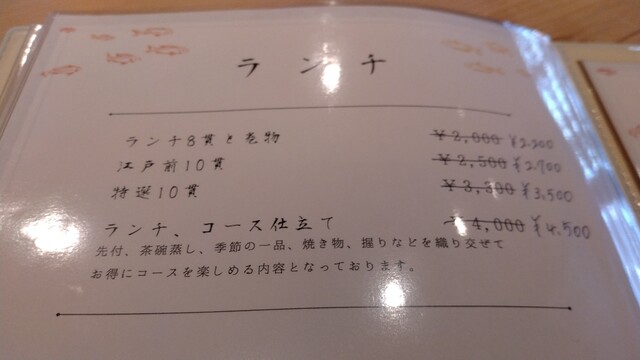 ランチ
ランチ8貫と巻物 ￥2,000 ¥2,200
江戸前10貫 ￥2,500 ¥2,700
特選10貫 ￥3,300 ¥3,500
ランチ、コース仕立て ￥4,000 ¥4,500
先付、茶碗蒸し、季節の一品、焼き物、握りなどを織り交ぜて
お得にコースを楽しめる内容となっております。